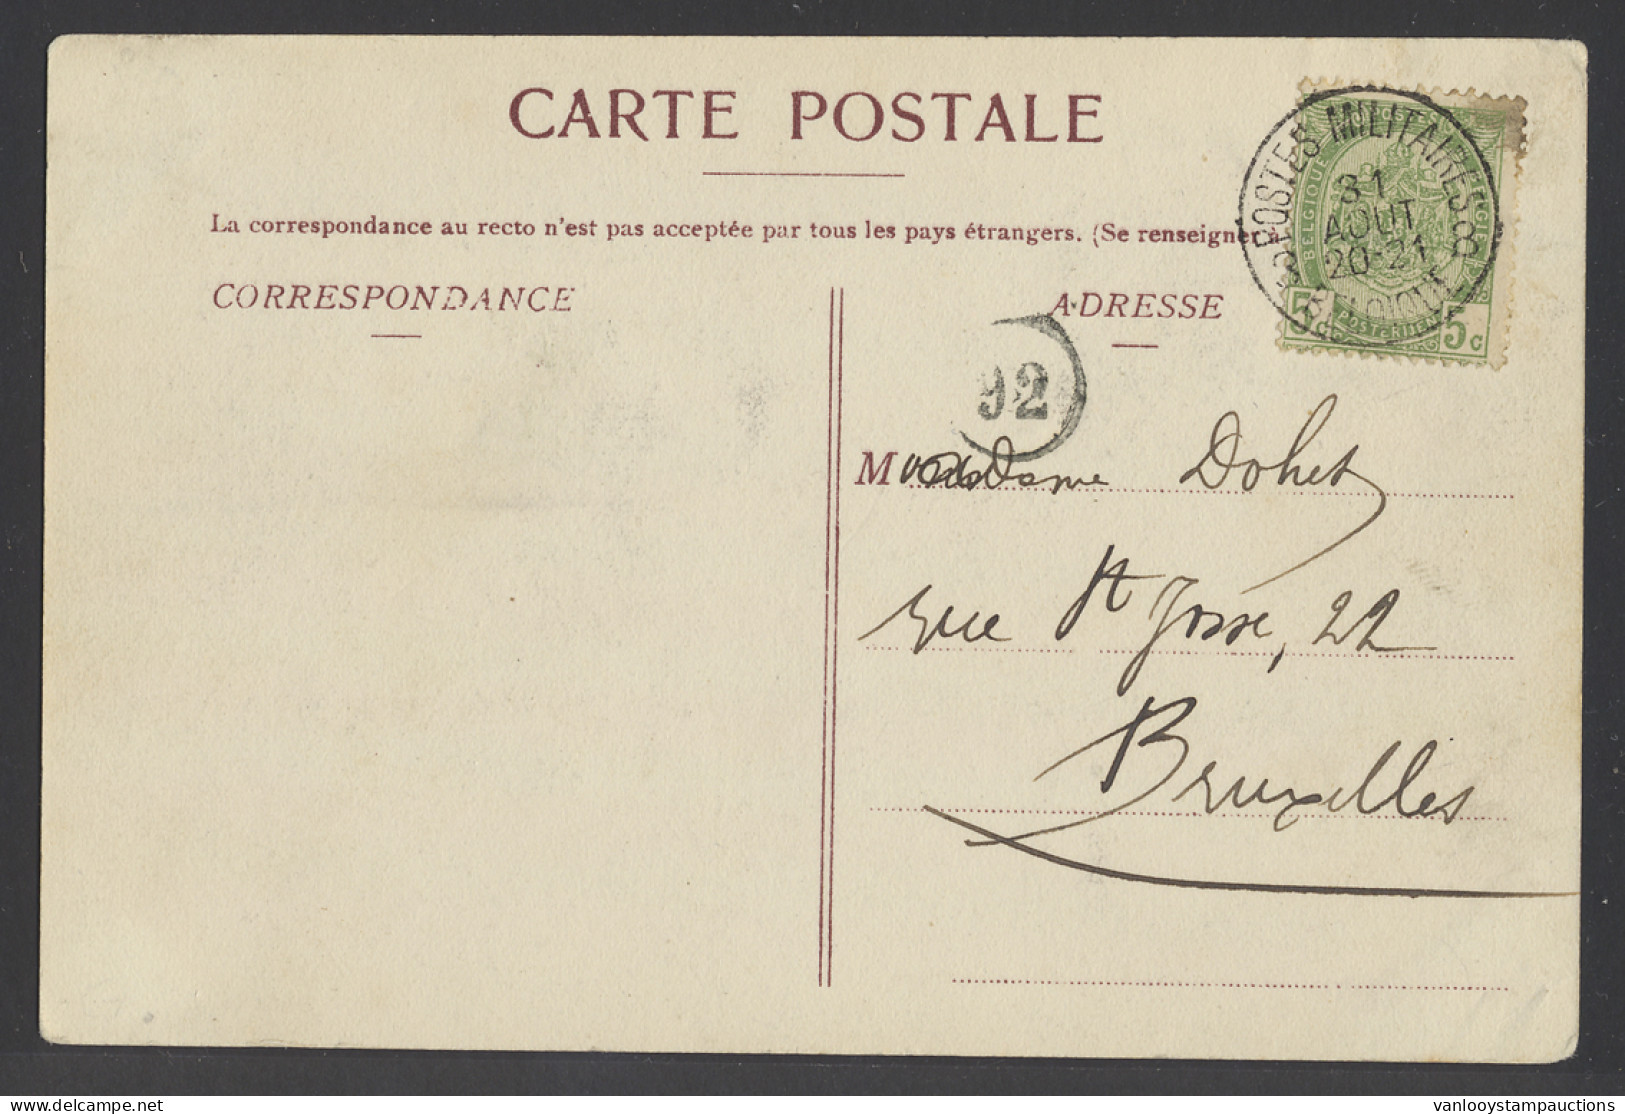 CARTE POSTALE
La correspondance au recto n'est pas acceptée par tous les pays étrangers. (Se renseigner à
CORRESPONDANCE
ADRESSE
POSTES MILITAIRES 8
31
AOUT
20-21
BELGIQUE
5c 5c
POSTERIJEN
92
Madame Dohet
rue St Josse, 22
Bruxelles
delcampe.net
vanlooystampauctions